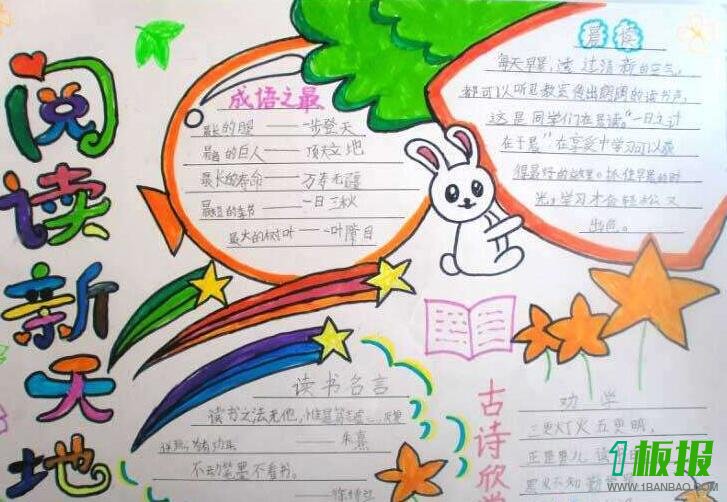 阅读新天地
成语之最
最长的腿——一步登天
最高的巨人——顶天立地
最长的寿命——万寿无疆
最短的季节——一日三秋
最大的树叶——一叶障目
晨读
每天早晨,透过清新的空气,
都可以听见教室传出朗朗的读书声,
这是同学们在晨读。"一日之计
在于晨"在享受中学习可以获
得最好的效果。抓住早晨的时
光,学习才会轻松又
出色。
读书名言
读书之法无他,惟是笃志虚心,反复
详玩,为有功耳
——朱熹
不动笔墨不看书。
——徐特立
古诗欣赏
劝学
三更灯火五更明,
正是男儿读书时
黑发不知勤学
1板报
WWW.1BANBAO.COM